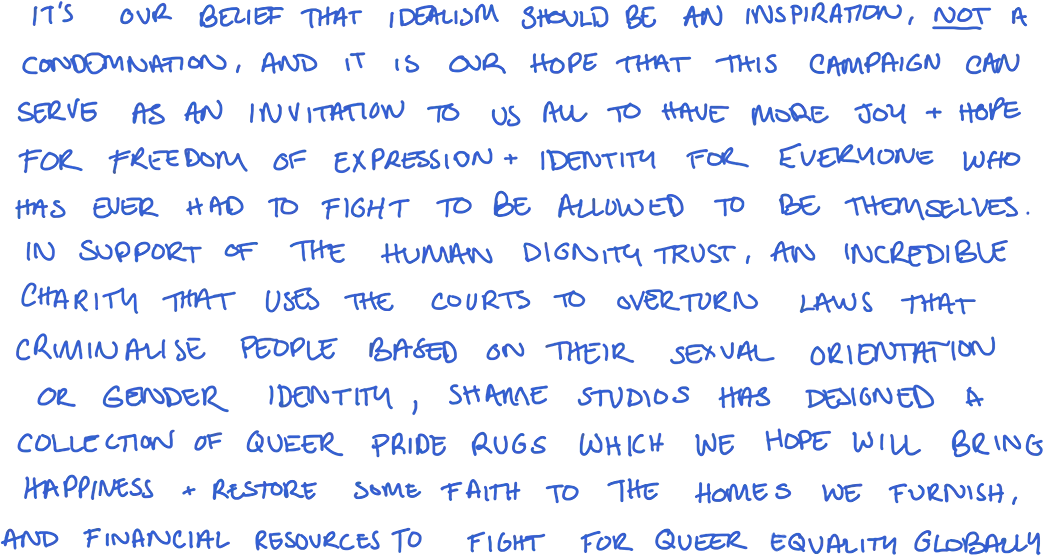 IT'S OUR BELIEF THAT IDEALISM SHOULD BE AN INSPIRATION, NOT A
CONDEMNATION, AND IT IS OUR HOPE THAT THIS CAMPAIGN CAN
SERVE AS AN INVITATION TO US ALL TO HAVE MORE JOY + HOPE
FOR FREEDOM OF EXPRESSION + IDENTITY FOR EVERYONE WHO
HAS EVER HAD TO FIGHT TO BE ALLOWED TO BE THEMSELVES.
IN SUPPORT OF THE HUMAN DIGNITY TRUST, AN INCREDIBLE
CHARITY THAT USES THE COURTS TO OVERTURN LAWS THAT
CRIMINALISE PEOPLE BASED ON THEIR SEXUAL ORIENTATION
OR GENDER IDENTITY, SHAME STUDIOS HAS DESIGNED A
COLLECTION OF QUEER PRIDE RUGS WHICH WE HOPE WILL BRING
HAPPINESS + RESTORE SOME FAITH TO THE HOMES WE FURNISH,
AND FINANCIAL RESOURCES TO FIGHT FOR QUEER EQUALITY GLOBALLY